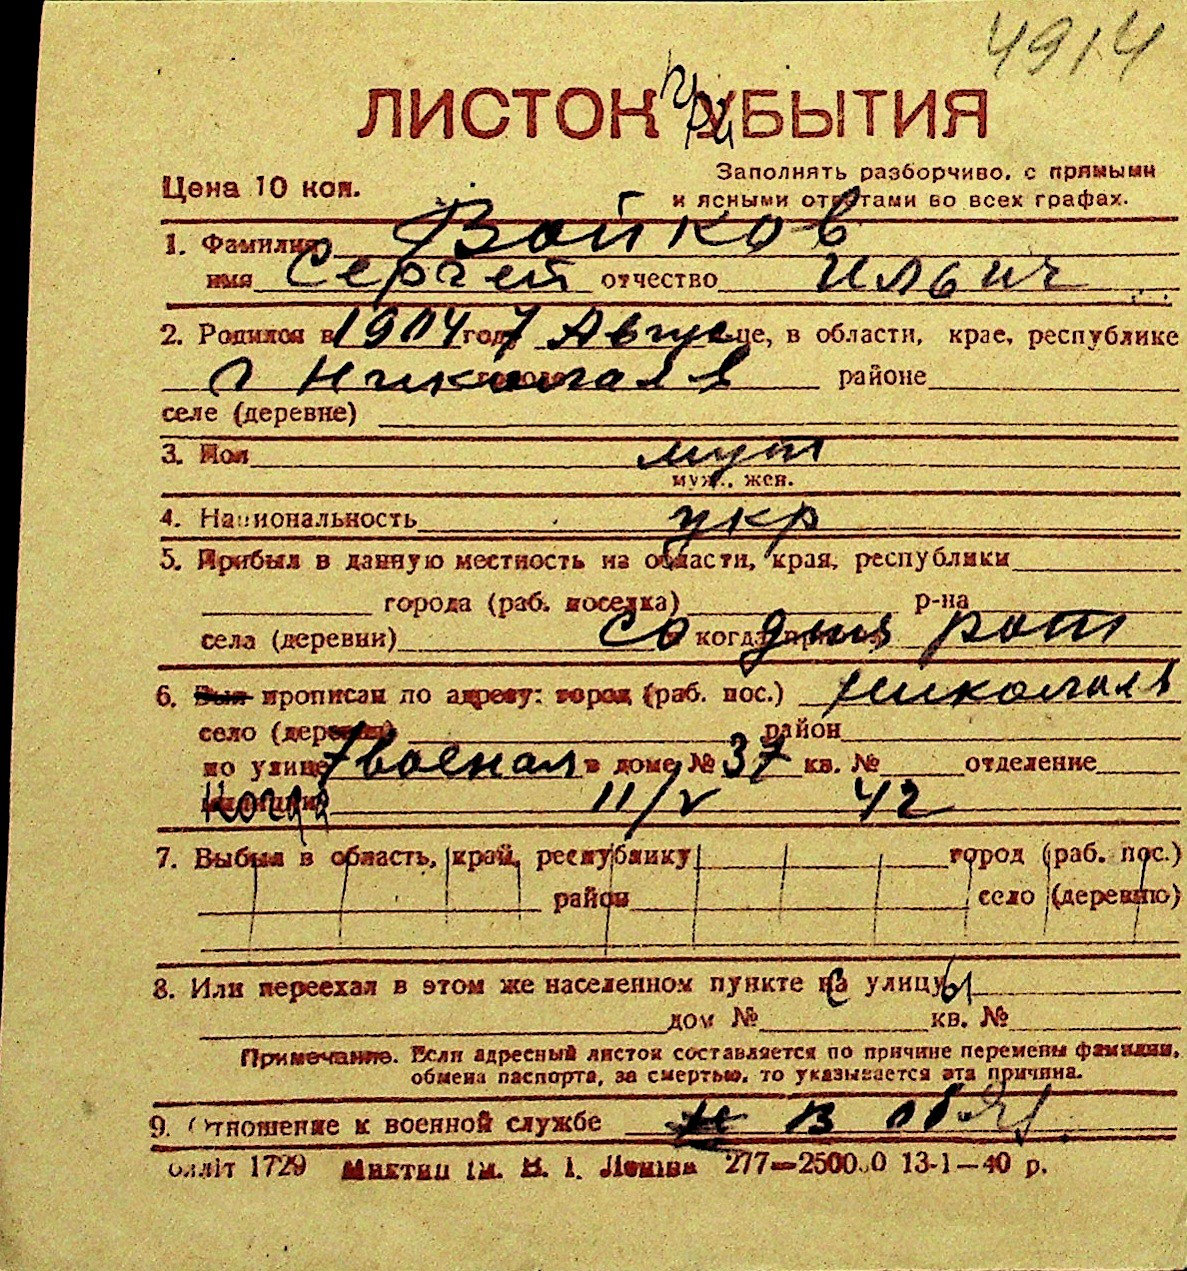 4914
ЛИСТОК при УБЫТИЯ
Цена 10 коп.
Заполнять разборчиво, с прямыми
и ясными ответами во всех графах.
1. Фамилия Войков
имя Сергей отчество Ильич
2. Родился в 1904 году 7 Авгус це, в области, крае, республике
г Николаев городе районе
селе (деревне)
3. Пол муж
муж., жен.
4. Национальность укр
5. Прибыл в данную местность из области, края, республики
города (раб. поселка) р-на
села (деревни) и когда прибыл со дня рож
6. Был прописан по адресу: город (раб. пос.) Николаев
село (деревня) район
по улице 7 военая в доме № 37 кв. № отделение
милиции Когда 11/V 42
7. Выбыл в область, край, республику город (раб. пос.)
район село (деревню)
8. Или переехал в этом же населенном пункте с улицы
дом № кв. №
Примечание. Если адресный листок составляется по причине перемены фамилии,
обмена паспорта, за смертью, то указывается эта причина.
9. Отношение к военной службе н в об
блліт 1729 Миктип ім. В. І. Леніна 277—250000 13-1—40 р.